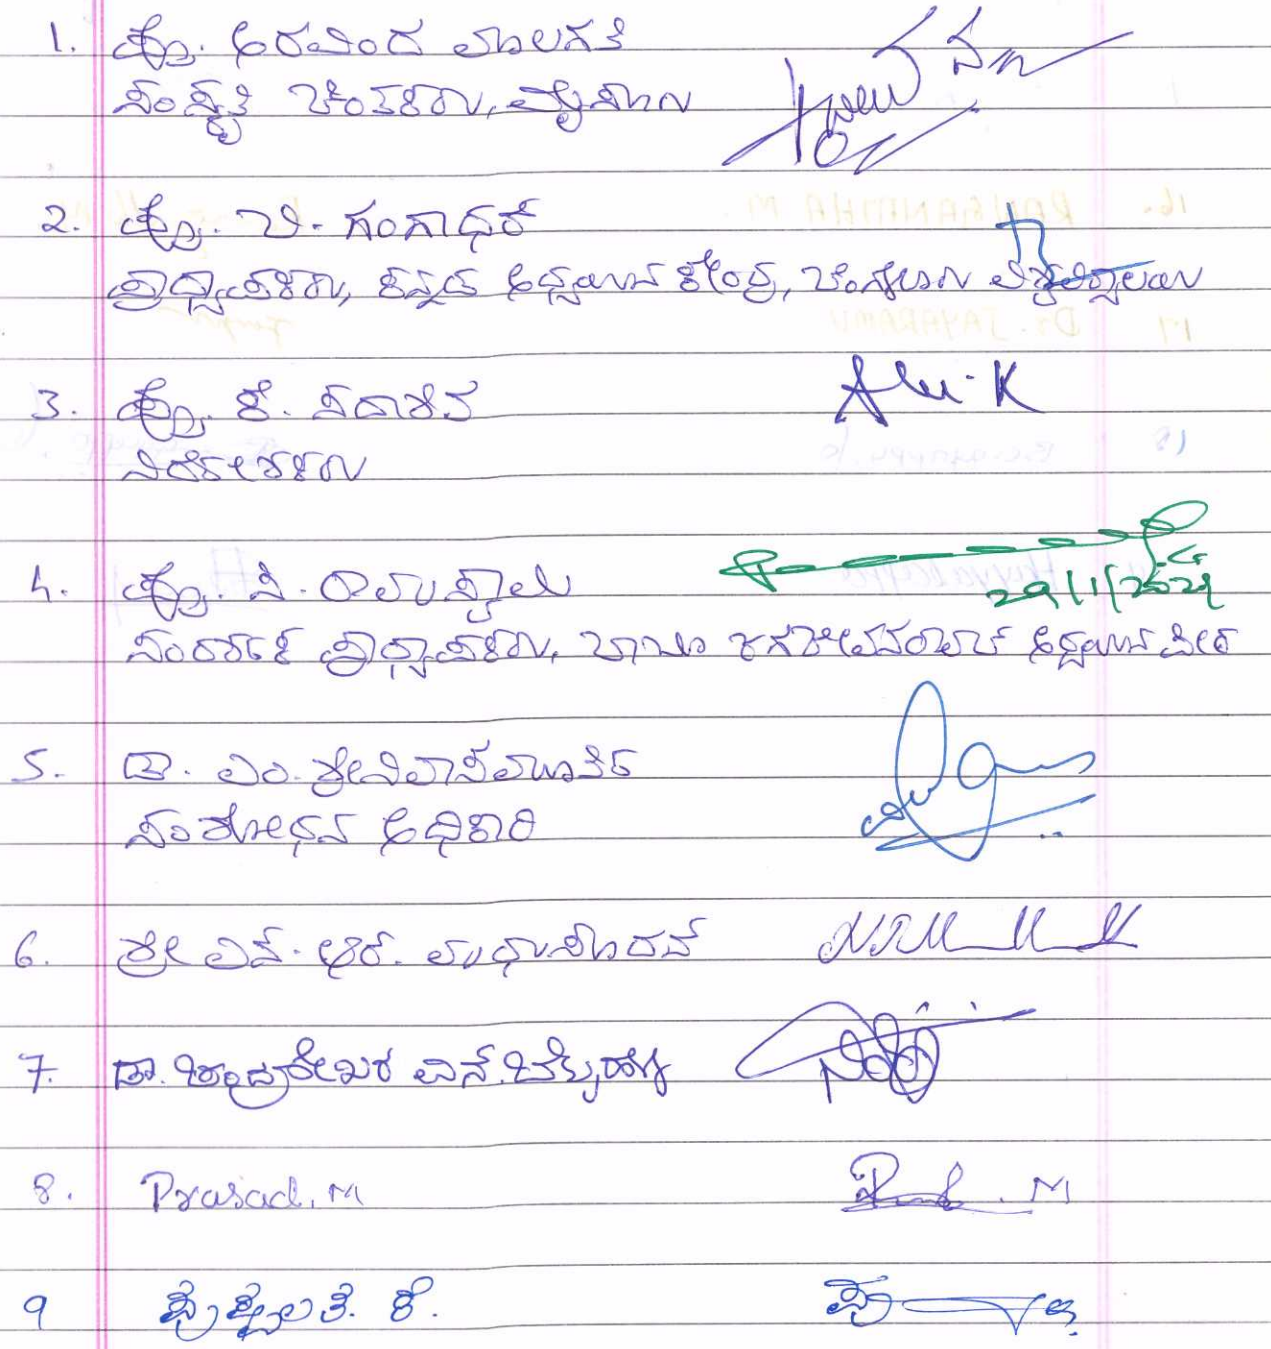 1. ಪ್ರೊ. ಅರವಿಂದ ಮಾಲಗತ್ತಿ
ಸಂಸ್ಕೃತಿ ಚಿಂತಕರು, ಮೈಸೂರು
2. ಪ್ರೊ. ಬಿ. ಗಂಗಾಧರ್
ಪ್ರಾಧ್ಯಾಪಕರು, ಕನ್ನಡ ಅಧ್ಯಯನ ಕೇಂದ್ರ, ಬೆಂಗಳೂರು ವಿಶ್ವವಿದ್ಯಾಲಯ
3. ಪ್ರೊ. ಕೆ. ಸದಾಶಿವ
ನಿರ್ದೇಶಕರು
4. ಪ್ರೊ. ಸಿ. ರಾಮಸ್ವಾಮಿ
29/1/2024
ಸಂದರ್ಶಕ ಪ್ರಾಧ್ಯಾಪಕರು, ಬಾಬೂ ಜಗಜೀವನರಾಮ್ ಅಧ್ಯಯನ ಪೀಠ
5. ಡಾ. ಎಂ. ಶ್ರೀನಿವಾಸಮೂರ್ತಿ
ಸಂಶೋಧನ ಅಧಿಕಾರಿ
6. ಶ್ರೀ ಎನ್. ಆರ್. ಮಧುಸೂದನ್
7. ಡಾ. ಚಂದ್ರಶೇಖರ ಎನ್.
8. Prasad. M
9 ಕೆ.